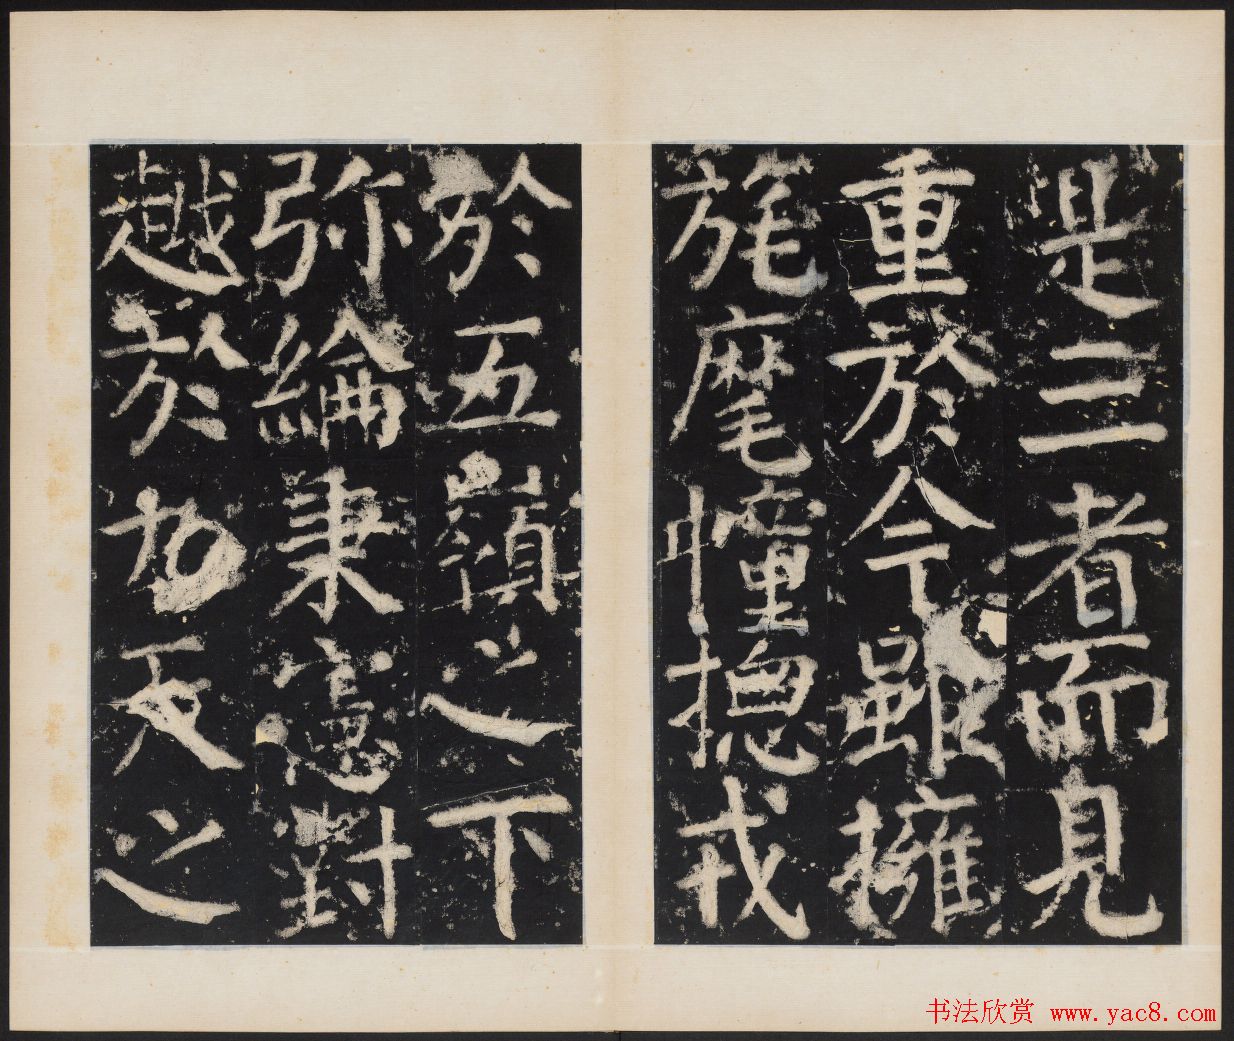 是三者而見
重於今雖擁
旄麾幢揔戎
於五嶺之下
弥綸秉憲對
越於九天之
书法欣赏 www.yac8.com